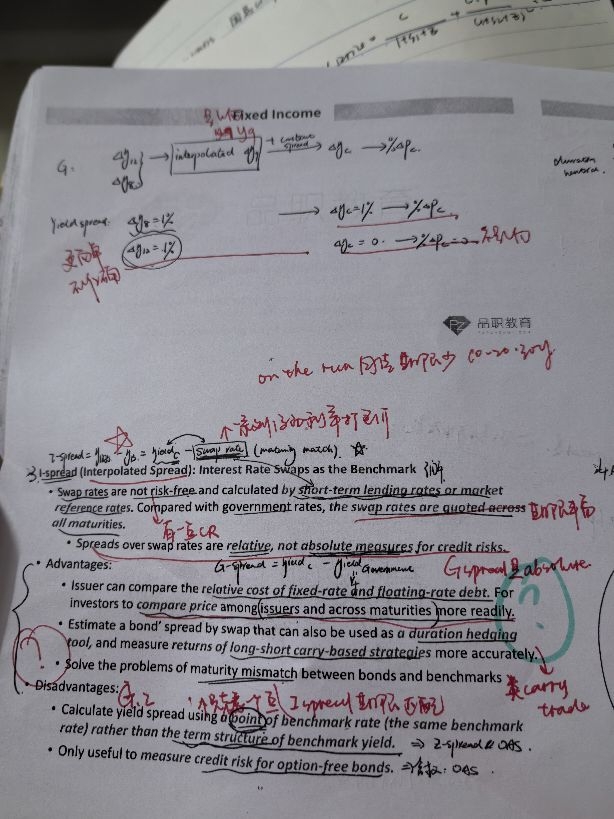 Fixed Income
G: Δy12 → interpolated + constant spread → Δyc → %Δpc
Δy8
duration neutral.
Yield spread: Δy8 = 1% → Δyc = 1% → %Δpc
Δy12 = 1% Δyc = 0. → %Δpc = 0
更简单
品职教育
on the run 的债期限少 10.20.30y
I-spread = yield c - Swap rate (maturity match)
3. I-spread (Interpolated Spread): Interest Rate Swaps as the Benchmark
• Swap rates are not risk-free and calculated by short-term lending rates or market
reference rates. Compared with government rates, the swap rates are quoted across 期限丰富
all maturities. 有一点CR
• Spreads over swap rates are relative, not absolute measures for credit risks.
• Advantages: G-spread = yield c - yield Government G spread是absolute.
• Issuer can compare the relative cost of fixed-rate and floating-rate debt. For
investors to compare price among issuers and across maturities more readily.
• Estimate a bond' spread by swap that can also be used as a duration hedging
tool, and measure returns of long-short carry-based strategies more accurately.
• Solve the problems of maturity mismatch between bonds and benchmarks 类carry trade
• Disadvantages: G.Z I spread 期限匹配
• Calculate yield spread using a point of benchmark rate (the same benchmark
rate) rather than the term structure of benchmark yield. ⇒ Z-spread & OAS.
• Only useful to measure credit risk for option-free bonds. ⇒ 含权: OAS.